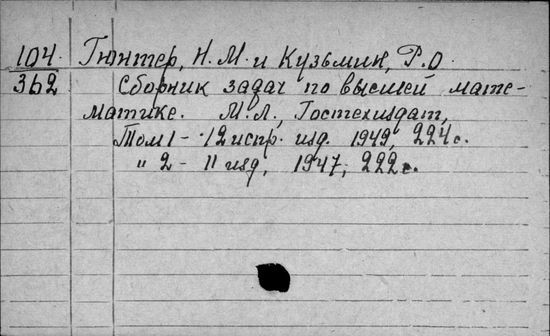 104. Гюнтер, Н.М. и Кузьмин, Р.О.
362 Сборник задач по высшей мате-
матике. М.Л., Гостехиздат,
Том 1 - 12 испр. изд. 1949, 224 с.
" 2 - 11 изд, 1947, 222 с.